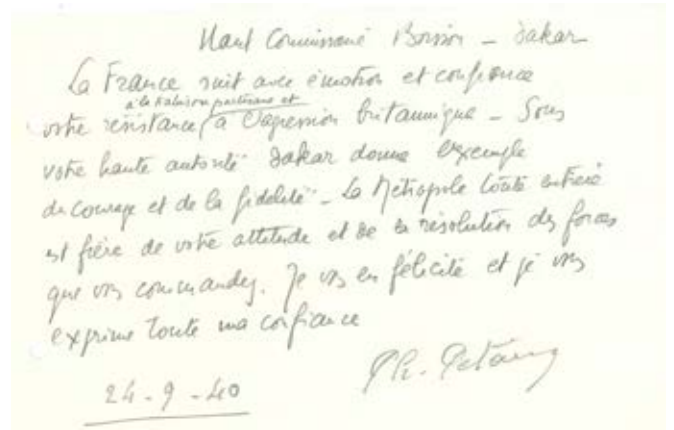 Haut Commissaire Boisson - Dakar
La France suit avec émotion et confiance
à la trahison partisane et
votre résistance, à l'agression britannique - Sous
votre haute autorité Dakar donne l'exemple
du courage et de la fidélité - La Métropole toute entière
est fière de votre attitude et de la résolution des forces
que vs commandez. Je vs en félicite et je vs
exprime toute ma confiance
Ph. Pétain
24 - 9 - 40